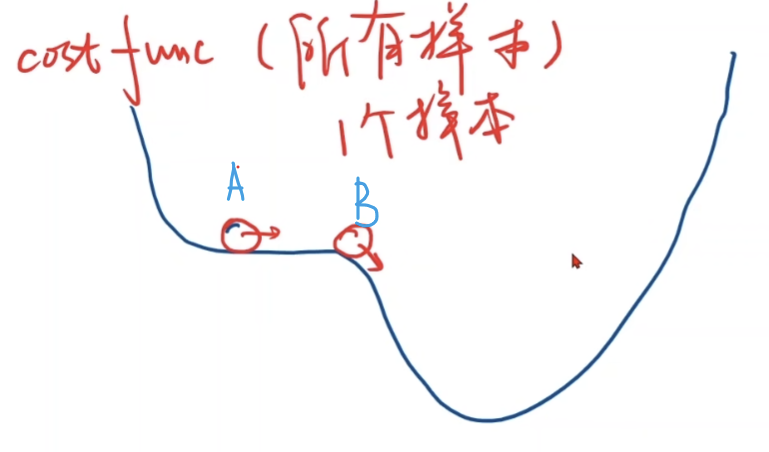 cost func (所有样本)
1个样本
A
B